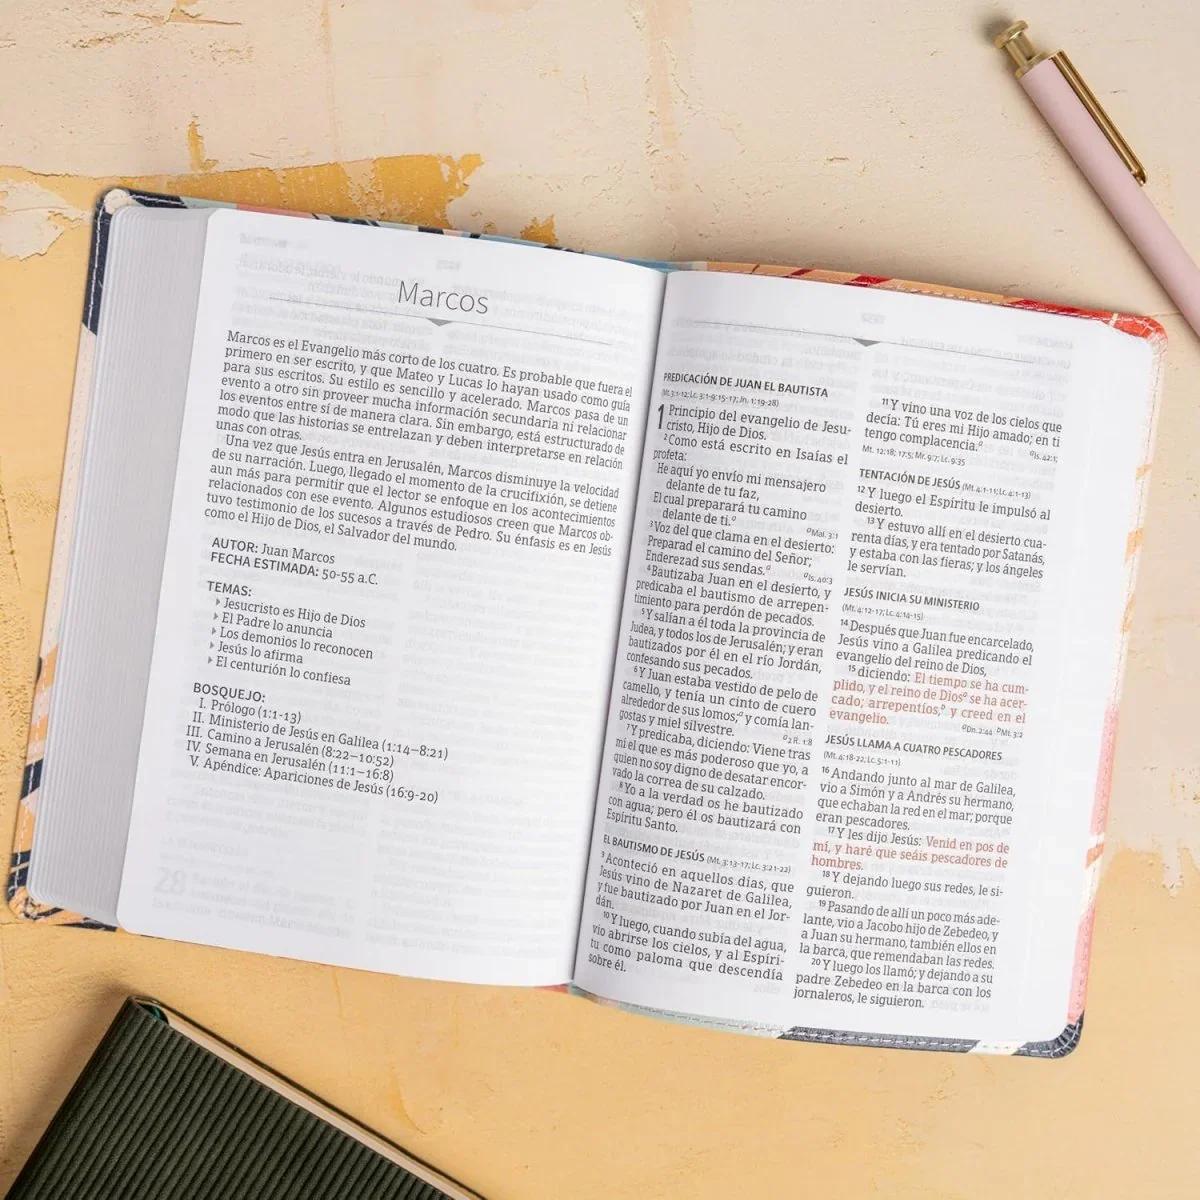 Marcos
Marcos es el Evangelio más corto de los cuatro. Es probable que fuera el
primero en ser escrito, y que Mateo y Lucas lo hayan usado como guía
para sus escritos. Su estilo es sencillo y acelerado. Marcos pasa de un
evento a otro sin proveer mucha información secundaria ni relacionar
los eventos entre sí de manera clara. Sin embargo, está estructurado de
modo que las historias se entrelazan y deben interpretarse en relación
unas con otras.
Una vez que Jesús entra en Jerusalén, Marcos disminuye la velocidad
de su narración. Luego, llegado el momento de la crucifixión, se detiene
aun más para permitir que el lector se enfoque en los acontecimientos
relacionados con ese evento. Algunos estudiosos creen que Marcos ob-
tuvo testimonio de los sucesos a través de Pedro. Su énfasis es en Jesús
como el Hijo de Dios, el Salvador del mundo.
AUTOR: Juan Marcos
FECHA ESTIMADA: 50-55 a.C.
TEMAS:
Jesucristo es Hijo de Dios
El Padre lo anuncia
Los demonios lo reconocen
Jesús lo afirma
El centurión lo confiesa
BOSQUEJO:
I. Prólogo (1:1-13)
II. Ministerio de Jesús en Galilea (1:14–8:21)
III. Camino a Jerusalén (8:22–10:52)
IV. Semana en Jerusalén (11:1–16:8)
V. Apéndice: Apariciones de Jesús (16:9-20)
PREDICACIÓN DE JUAN EL BAUTISTA
(Mt. 3:1-12; Lc. 3:1-9,15-17; Jn. 1:19-28)
1 Principio del evangelio de Jesu-
cristo, Hijo de Dios.
2 Como está escrito en Isaías el
profeta:
He aquí yo envío mi mensajero
delante de tu faz,
El cual preparará tu camino
delante de ti.a aMal. 3:1
3 Voz del que clama en el desierto:
Preparad el camino del Señor;
Enderezad sus sendas.a aIs. 40:3
4 Bautizaba Juan en el desierto, y
predicaba el bautismo de arrepen-
timiento para perdón de pecados.
5 Y salían a él toda la provincia de
Judea, y todos los de Jerusalén; y eran
bautizados por él en el río Jordán,
confesando sus pecados.
6 Y Juan estaba vestido de pelo de
camello, y tenía un cinto de cuero
alrededor de sus lomos;a y comía lan-
gostas y miel silvestre. a2 R. 1:8
7 Y predicaba, diciendo: Viene tras
mí el que es más poderoso que yo, a
quien no soy digno de desatar encor-
vado la correa de su calzado.
8 Yo a la verdad os he bautizado
con agua; pero él os bautizará con
Espíritu Santo.
EL BAUTISMO DE JESÚS (Mt. 3:13-17; Lc. 3:21-22)
9 Aconteció en aquellos días, que
Jesús vino de Nazaret de Galilea,
y fue bautizado por Juan en el Jor-
dán.
10 Y luego, cuando subía del agua,
vio abrirse los cielos, y al Espíri-
tu como paloma que descendía
sobre él.
11 Y vino una voz de los cielos que
decía: Tú eres mi Hijo amado; en ti
tengo complacencia.a aIs. 42:1;
Mt. 12:18; 17:5; Mr. 9:7; Lc. 9:35
TENTACIÓN DE JESÚS (Mt. 4:1-11; Lc. 4:1-13)
12 Y luego el Espíritu le impulsó al
desierto.
13 Y estuvo allí en el desierto cua-
renta días, y era tentado por Satanás,
y estaba con las fieras; y los ángeles
le servían.
JESÚS INICIA SU MINISTERIO
(Mt. 4:12-17; Lc. 4:14-15)
14 Después que Juan fue encarcelado,
Jesús vino a Galilea predicando el
evangelio del reino de Dios,
15 diciendo: El tiempo se ha cum-
plido, y el reino de Diosa se ha acer-
cado; arrepentíos,b y creed en el
evangelio. aDn. 2:44 bMt. 3:2
JESÚS LLAMA A CUATRO PESCADORES
(Mt. 4:18-22; Lc. 5:1-11)
16 Andando junto al mar de Galilea,
vio a Simón y a Andrés su hermano,
que echaban la red en el mar; porque
eran pescadores.
17 Y les dijo Jesús: Venid en pos de
mí, y haré que seáis pescadores de
hombres.
18 Y dejando luego sus redes, le si-
guieron.
19 Pasando de allí un poco más ade-
lante, vio a Jacobo hijo de Zebedeo, y
a Juan su hermano, también ellos en
la barca, que remendaban las redes.
20 Y luego los llamó; y dejando a su
padre Zebedeo en la barca con los
jornaleros, le siguieron.